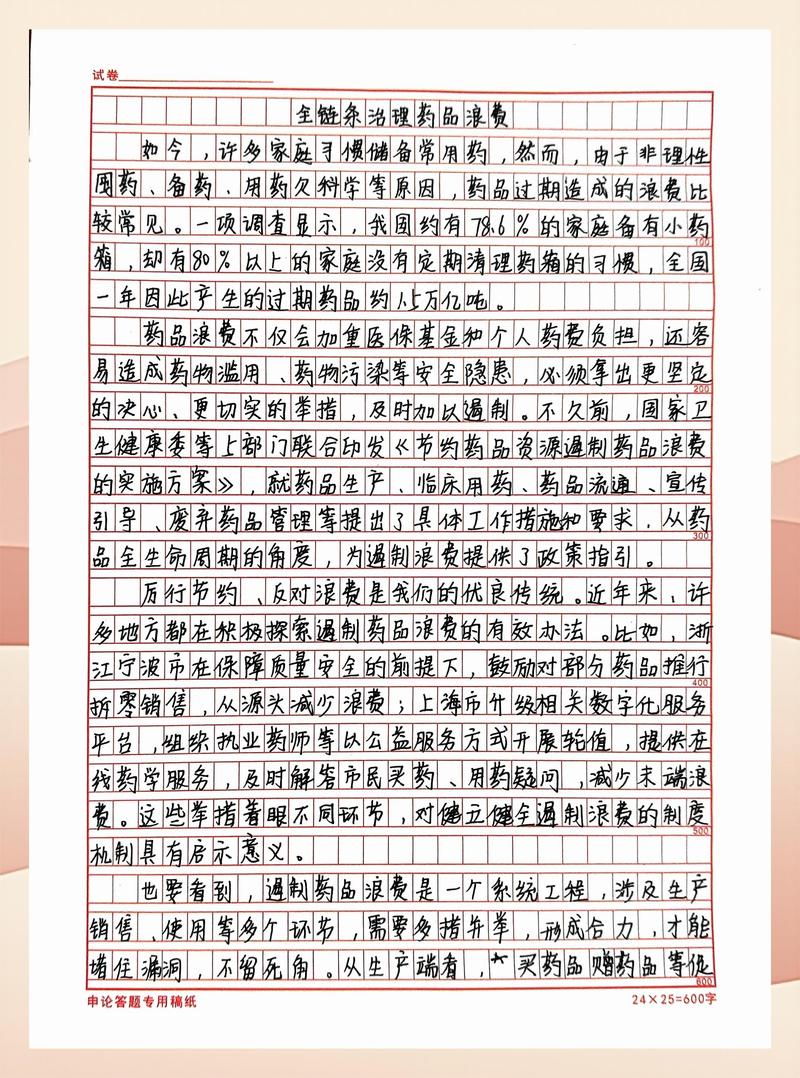 试卷
全链条治理药品浪费
如今，许多家庭习惯储备常用药，然而，由于非理性
囤药、备药、用药欠科学等原因，药品过期造成的浪费比
较常见。一项调查显示，我国约有78.6%的家庭备有小药
100
箱，却有80%以上的家庭没有定期清理药箱的习惯，全国
一年因此产生的过期药品约1.5万亿吨。
药品浪费不仅会加重医保基金和个人药费负担，还容
易造成药物滥用、药物污染等安全隐患，必须拿出更坚定
200
的决心、更切实的举措，及时加以遏制。不久前，国家卫
生健康委等上部门联合印发《节约药品资源遏制药品浪费
的实施方案》，就药品生产、临床用药、药品流通、宣传
引导、废弃药品管理等提出了具体工作措施和要求，从药
300
品全生命周期的角度，为遏制浪费提供了政策指引。
厉行节约、反对浪费是我们的优良传统。近年来，许
多地方都在积极探索遏制药品浪费的有效办法。比如，浙
江宁波市在保障质量安全的前提下，鼓励对部分药品推行
400
拆零销售，从源头减少浪费；上海市升级相关数字化服务
平台，组织执业药师等以公益服务方式开展轮值，提供在
线药学服务，及时解答市民买药、用药疑问，减少末端浪
费。这些举措着眼不同环节，对健立健全遏制浪费的制度
500
机制具有启示意义。
也要看到，遏制药品浪费是一个系统工程，涉及生产
销售、使用等多个环节，需要多措并举，形成合力，才能
堵住漏洞，不留死角。从生产端看，"买药品赠药品等促
600
申论答题专用稿纸
24×25=600字